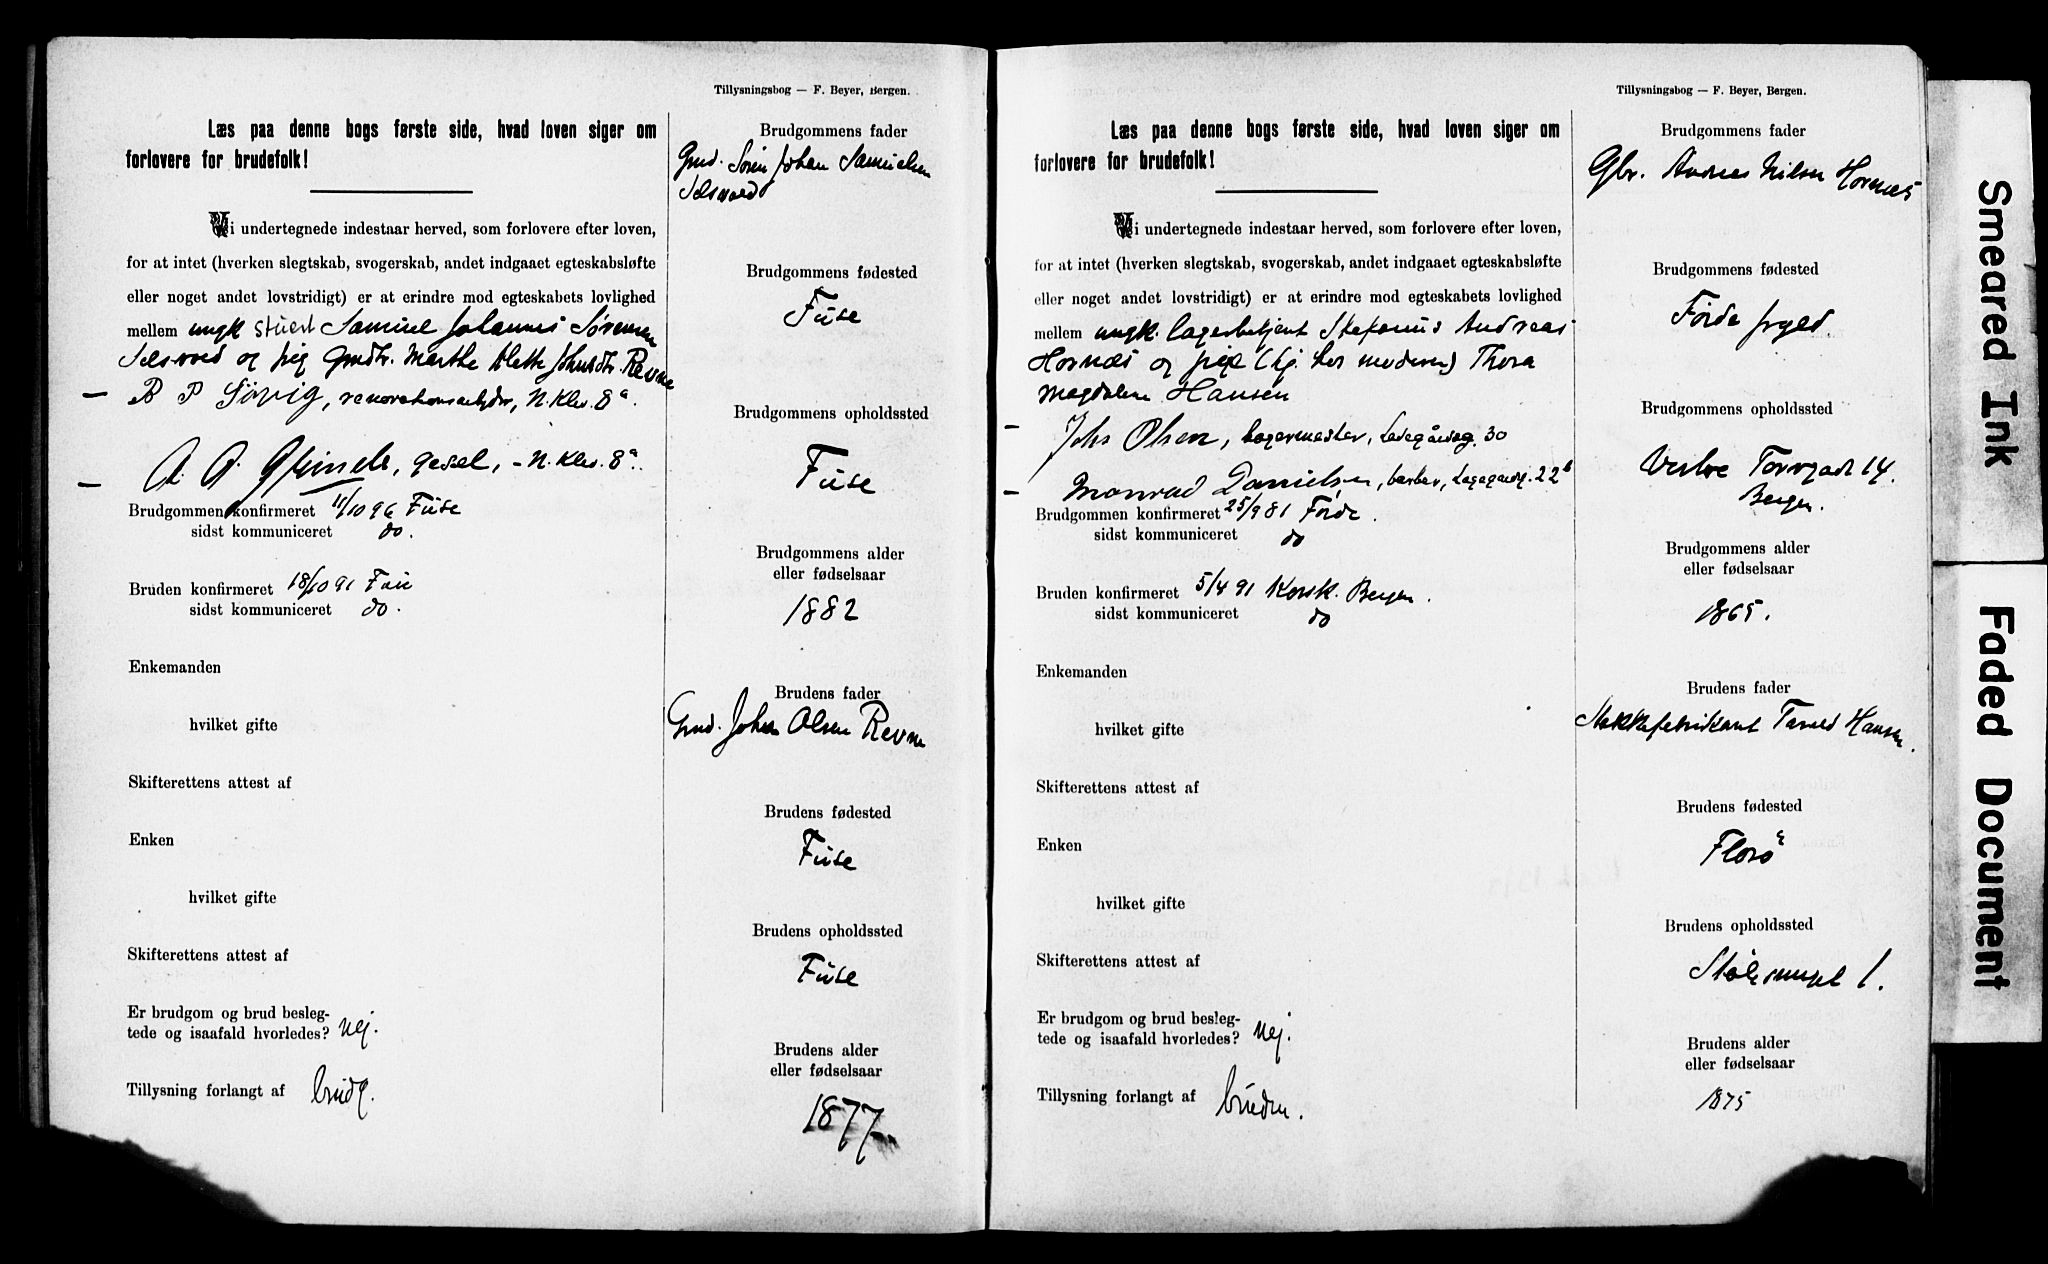 Tillysningsbog — F. Beyer, Bergen.
Læs paa denne bogs første side, hvad loven siger om
forlovere for brudefolk!
Vi undertegnede indestaar herved, som forlovere efter loven,
for at intet (hverken slegtskab, svogerskab, andet indgaaet egteskabsløfte
eller noget andet lovstridigt) er at erindre mod egteskabets lovlighed
mellem ungk stuert Samuel Johannes Sørensen
og pig Gmdtr. Marthe Johnsdtr. Revne
B P Sørvig, renovationsarbejder, N. Klev. 8a.
A. P. gesel, - N. Klev. 8a.
Brudgommen konfirmeret 11/10 96 Fuse
sidst kommuniceret do.
Bruden konfirmeret 18/10 91 Fuse
sidst kommuniceret do.
Enkemanden
hvilket gifte
Skifterettens attest af
Enken
hvilket gifte
Skifterettens attest af
Er brudgom og brud besleg-
tede og isaafald hvorledes? Nej.
Tillysning forlangt af brudg.
Brudgommens fader
Gmd. Søren Johan Samuelsen
Brudgommens fødested
Fuse
Brudgommens opholdssted
Fuse
Brudgommens alder
eller fødselsaar
1882
Brudens fader
Gmd. Johan Olsen Revne
Brudens fødested
Fuse
Brudens opholdssted
Fuse
Brudens alder
eller fødselsaar
1877
Tillysningsbog — F. Beyer, Bergen.
Læs paa denne bogs første side, hvad loven siger om
forlovere for brudefolk!
Vi undertegnede indestaar herved, som forlovere efter loven,
for at intet (hverken slegtskab, svogerskab, andet indgaaet egteskabsløfte
eller noget andet lovstridigt) er at erindre mod egteskabets lovlighed
mellem ungk. lagerbetjent Stefanus Andreas
Hornæs og pige (hj. hos moderen) Thora
Magdalene Hansen
Johs Olsen, bagermester, Ladegårdsg. 30
Monrad Danielsen, barber, 22b
Brudgommen konfirmeret 25/9 81 Førde.
sidst kommuniceret do
Bruden konfirmeret 5/4 91 Korsk. Bergen.
sidst kommuniceret do
Enkemanden
hvilket gifte
Skifterettens attest af
Enken
hvilket gifte
Skifterettens attest af
Er brudgom og brud besleg-
tede og isaafald hvorledes? Nej.
Tillysning forlangt af bruden.
Brudgommens fader
Gbr. Andreas Nilsen Hornæs
Brudgommens fødested
Førde prgjeld.
Brudgommens opholdssted
Vestre Torvgade 14.
Bergen.
Brudgommens alder
eller fødselsaar
1865.
Brudens fader
Hansen.
Brudens fødested
Florø
Brudens opholdssted
Stølesmuget 1.
Brudens alder
eller fødselsaar
1875
Smeared Ink
Faded Document